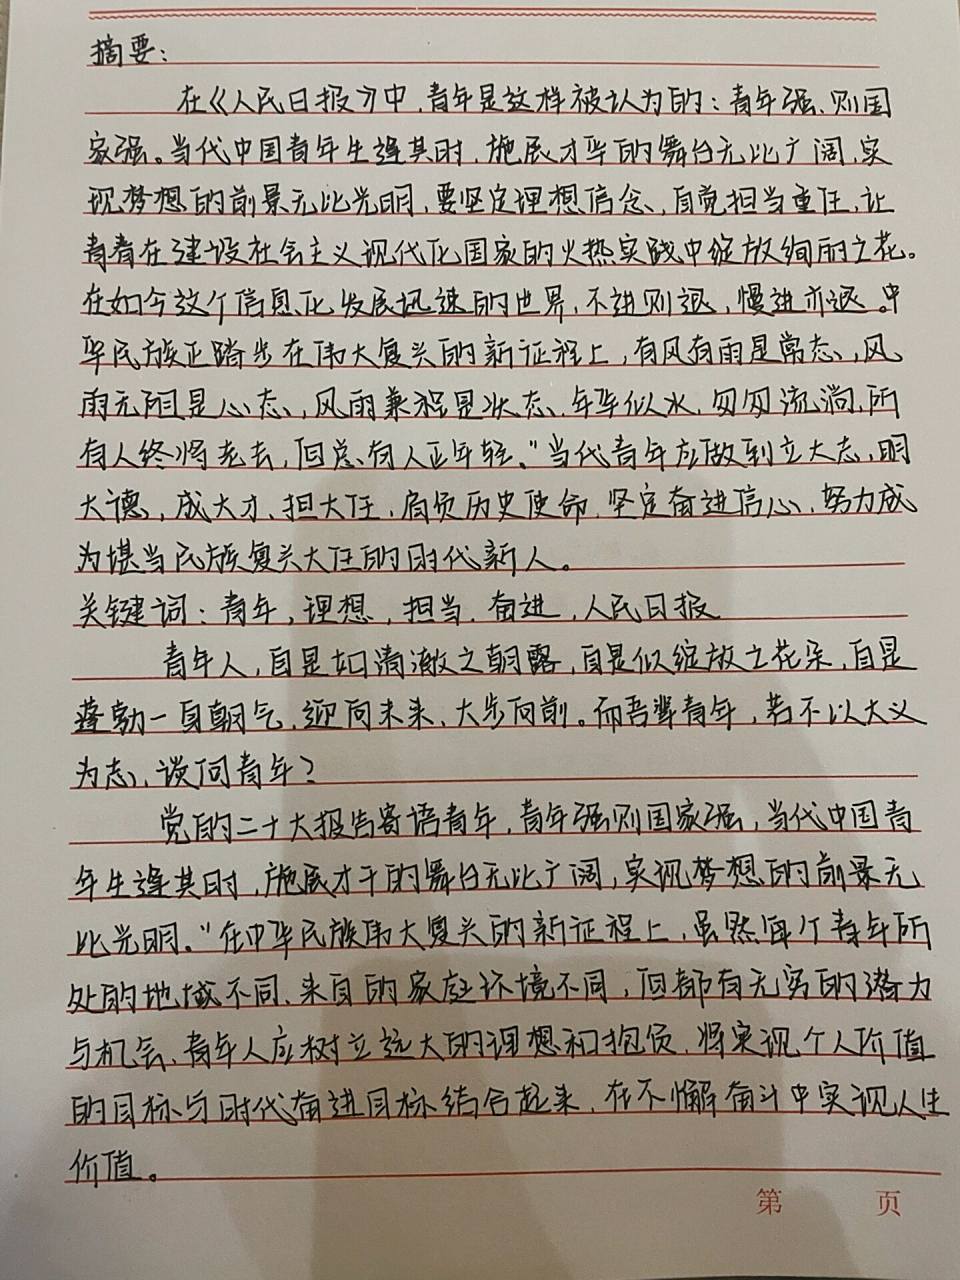 摘要：
在《人民日报》中，青年是这样被认为的：青年强、则国
家强。当代中国青年生逢其时，施展才华的舞台无比广阔，实
现梦想的前景无比光明，要坚定理想信念、自觉担当重任，让
青春在建设社会主义现代化国家的火热实践中绽放绚丽之花。
在如今这个信息化发展迅速的世界，不进则退，慢进亦退。中
华民族正踏步在伟大复兴的新征程上，有风有雨是常态，风
雨无阻是心态，风雨兼程是状态，年华似水，匆匆流淌，所
有人终将老去，但总有人正年轻。"当代青年应做到立大志，明
大德，成大才，担大任，肩负历史使命，坚定奋进信心，努力成
为堪当民族复兴大任的时代新人。
关键词：青年，理想，担当，奋进，人民日报
青年人，自是如清澈之朝露，自是似绽放之花朵，自是
蓬勃一身朝气，迎向未来，大步向前。而吾辈青年，若不以大义
为志，谈何青年？
党的二十大报告寄语青年，青年强则国家强，当代中国青
年生逢其时，施展才干的舞台无比广阔，实现梦想的前景无
比光明。"在中华民族伟大复兴的新征程上，虽然每个青年所
处的地域不同、来自的家庭环境不同，但都有无穷的潜力
与机会、青年人应树立远大的理想和抱负，将实现个人价值
的目标与时代奋进目标结合起来，在不懈奋斗中实现人生
价值。
第 页